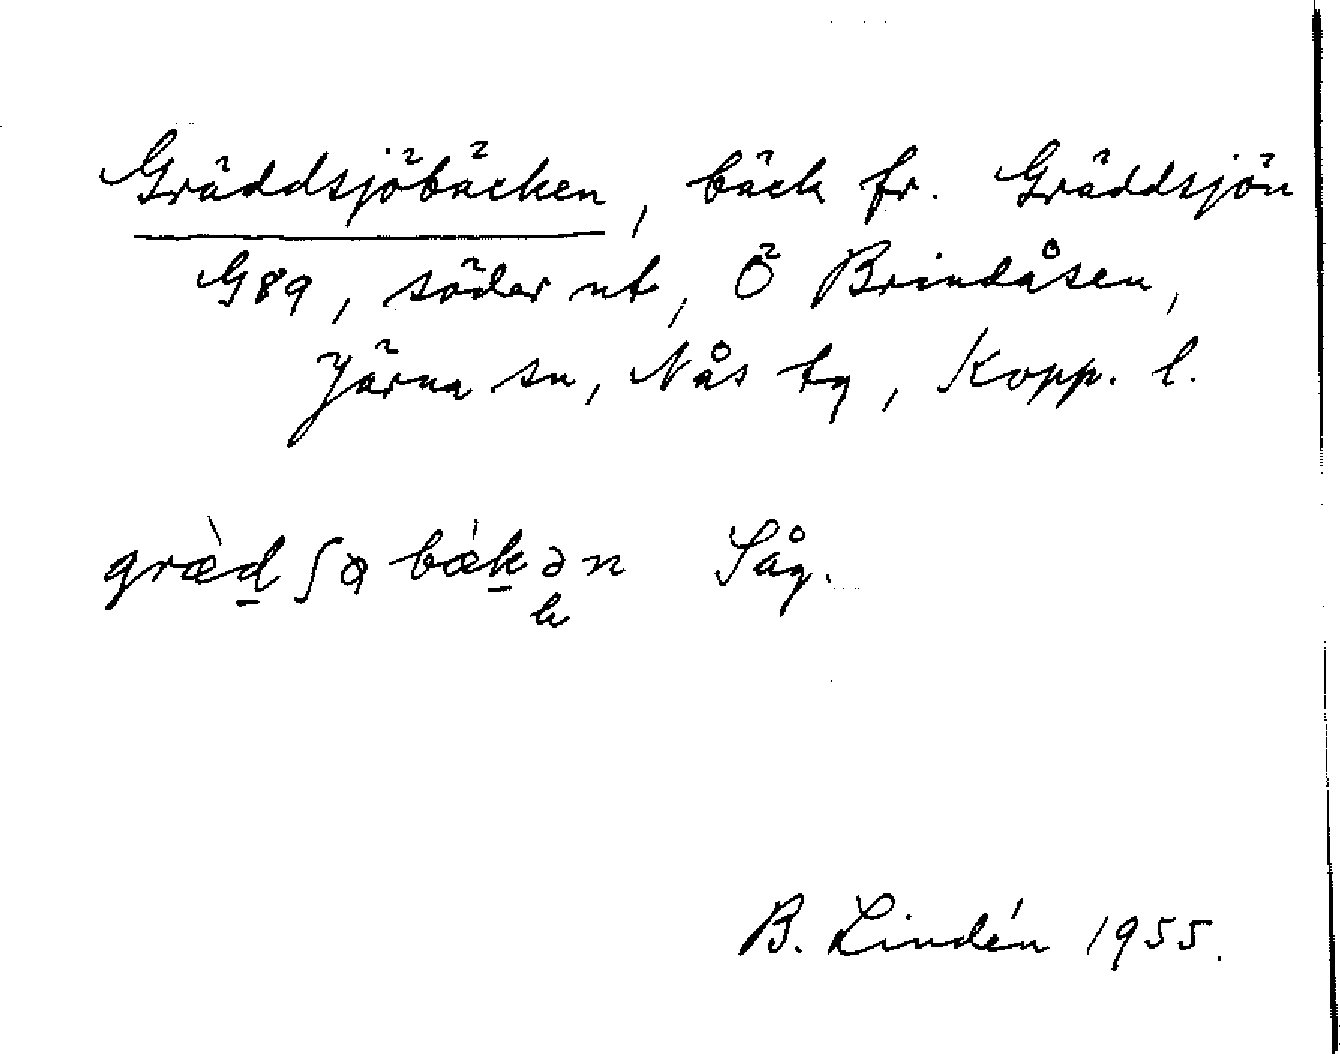 Gräddsjöbäcken, bäck fr. Gräddsjön
G89, söder ut, Ö Brindåsen,
Järna sn, Nås tg, Kopp. l.
græ̀d̲ʃɷbǽk̲ən Såg.
B. Lindén 1955.